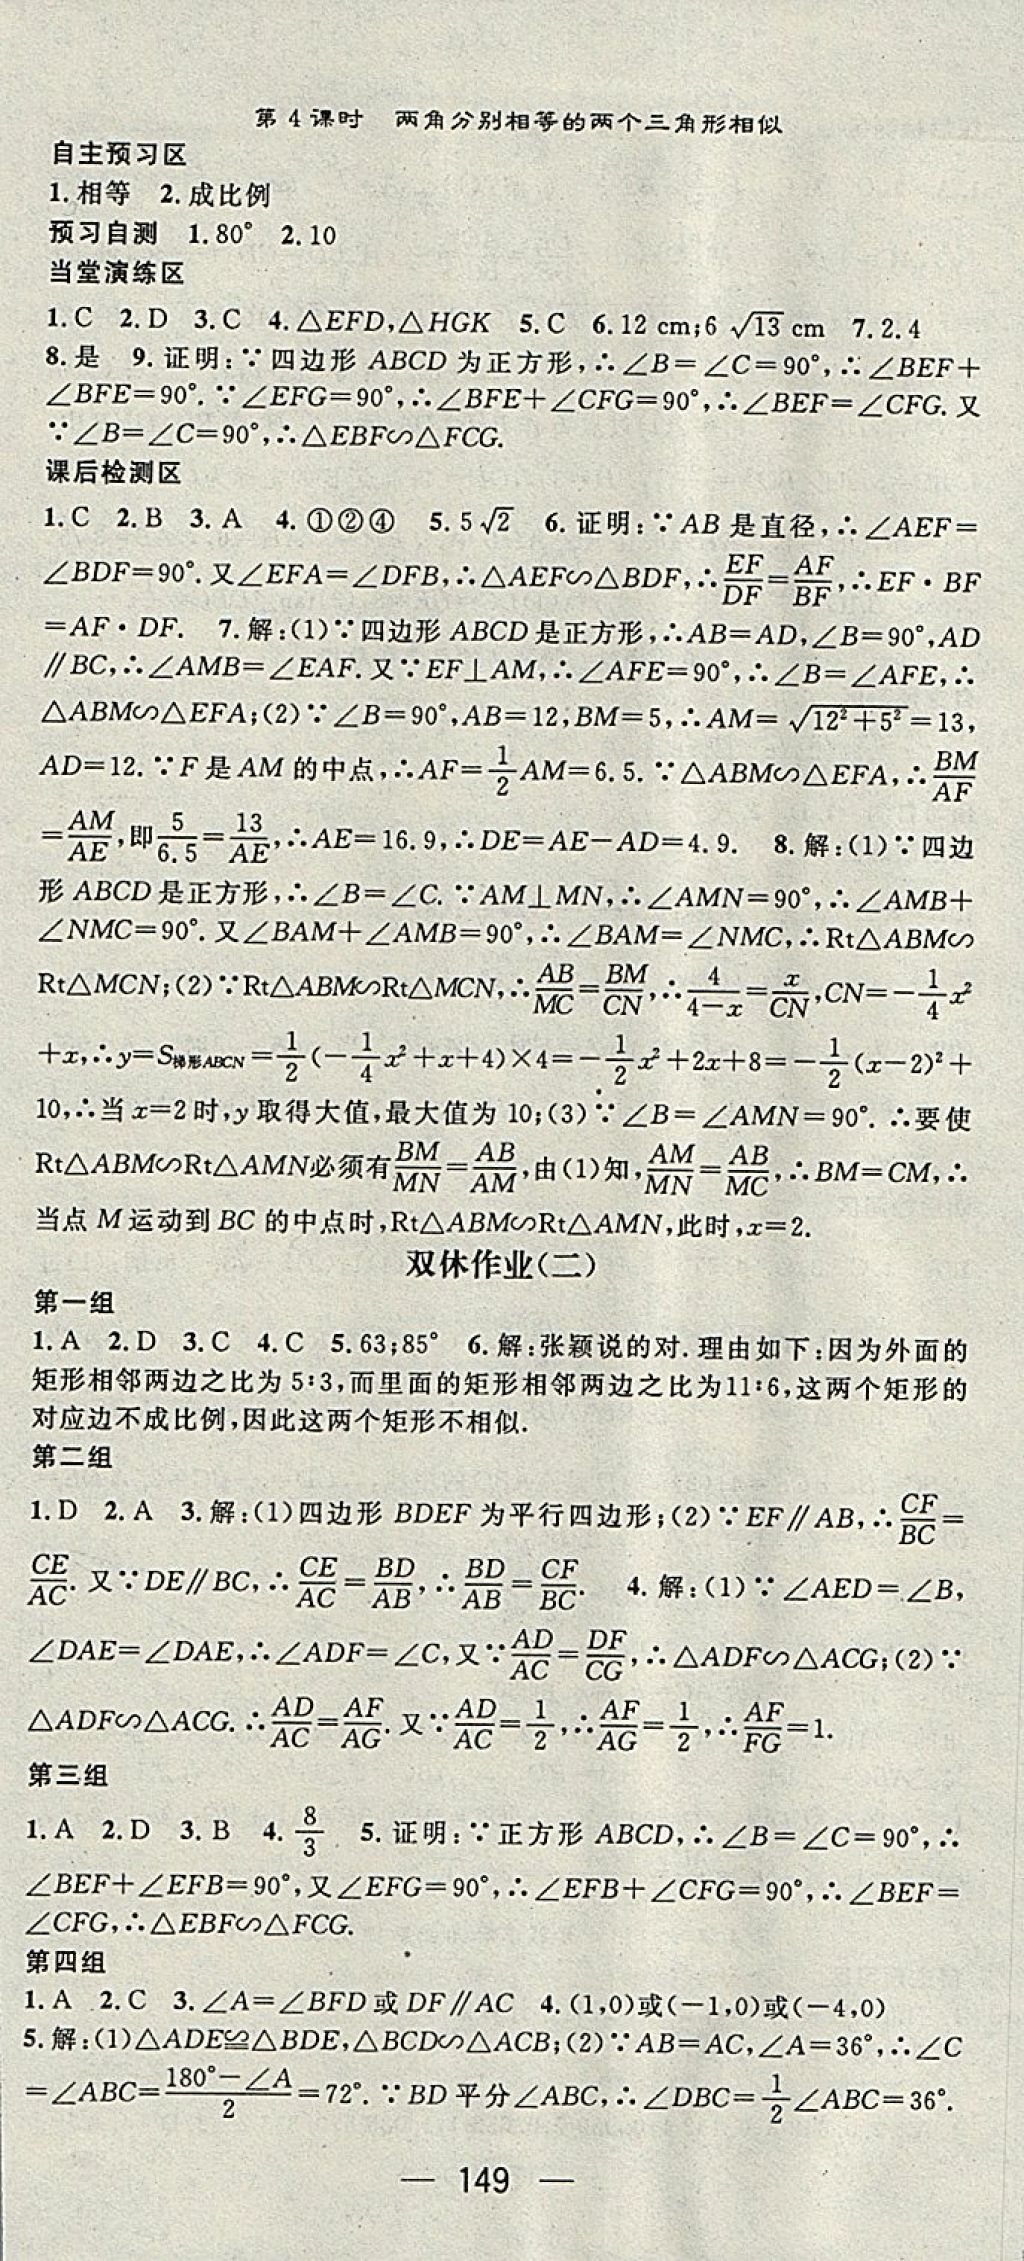 第4课时　两角分别相等的两个三角形相似
自主预习区
1.相等　2.成比例
预习自测　1.80°　2.10
当堂演练区
1.C　2.D　3.C　4.△EFD,△HGK　5.C　6.12 cm;6√13 cm　7.2.4
8.是　9.证明:∵四边形ABCD为正方形,∴∠B=∠C=90°,∴∠BEF+
∠BFE=90°.∵∠EFG=90°,∴∠BFE+∠CFG=90°,∴∠BEF=∠CFG.又
∵∠B=∠C=90°,∴△EBF∽△FCG.
课后检测区
1.C　2.B　3.A　4.①②④　5.5√2　6.证明:∵AB是直径,∴∠AEF=
∠BDF=90°.又∠EFA=∠DFB,∴△AEF∽△BDF,∴EF/DF=AF/BF,∴EF·BF
=AF·DF.　7.解:(1)∵四边形ABCD是正方形,∴AB=AD,∠B=90°,AD
∥BC,∴∠AMB=∠EAF.又∵EF⊥AM,∴∠AFE=90°,∴∠B=∠AFE,∴
△ABM∽△EFA;(2)∵∠B=90°,AB=12,BM=5,∴AM=√(12²+5²)=13,
AD=12.∵F是AM的中点,∴AF=1/2AM=6.5.∵△ABM∽△EFA,∴BM/AF
=AM/AE,即5/6.5=13/AE,∴AE=16.9,∴DE=AE-AD=4.9.　8.解:(1)∵四边
形ABCD是正方形,∴∠B=∠C.∵AM⊥MN,∴∠AMN=90°,∴∠AMB+
∠NMC=90°.又∠BAM+∠AMB=90°,∴∠BAM=∠NMC,∴Rt△ABM∽
Rt△MCN;(2)∵Rt△ABM∽Rt△MCN,∴AB/MC=BM/CN,∴4/(4-x)=x/CN,CN=-1/4x²
+x,∴y=S梯形ABCN=1/2(-1/4x²+x+4)×4=-1/2x²+2x+8=-1/2(x-2)²+
10,∴当x=2时,y取得大值,最大值为10;(3)∵∠B=∠AMN=90°.∴要使
Rt△ABM∽Rt△AMN必须有BM/MN=AB/AM,由(1)知,AM/MN=AB/MC,∴BM=CM,∴
当点M运动到BC的中点时,Rt△ABM∽Rt△AMN,此时,x=2.
双休作业(二)
第一组
1.A　2.D　3.C　4.C　5.63;85°　6.解:张颖说的对.理由如下:因为外面的
矩形相邻两边之比为5∶3,而里面的矩形相邻两边之比为11∶6,这两个矩形的
对应边不成比例,因此这两个矩形不相似.
第二组
1.D　2.A　3.解:(1)四边形BDEF为平行四边形;(2)∵EF∥AB,∴CF/BC=
CE/AC.又∵DE∥BC,∴CE/AC=BD/AB,∴BD/AB=CF/BC.　4.解:(1)∵∠AED=∠B,
∠DAE=∠DAE,∴∠ADF=∠C,又∵AD/AC=DF/CG,∴△ADF∽△ACG;(2)∵
△ADF∽△ACG.∴AD/AC=AF/AG.又∵AD/AC=1/2,∴AF/AG=1/2,∴AF/FG=1.
第三组
1.A　2.D　3.B　4.8/3　5.证明:∵正方形ABCD,∴∠B=∠C=90°,∴
∠BEF+∠EFB=90°,又∠EFG=90°,∴∠EFB+∠CFG=90°,∴∠BEF=
∠CFG,∴△EBF∽△FCG.
第四组
1.A　2.C　3.∠A=∠BFD或DF∥AC　4.(1,0)或(-1,0)或(-4,0)
5.解:(1)△ADE≌△BDE,△BCD∽△ACB;(2)∵AB=AC,∠A=36°,∴∠C
=∠ABC=(180°-∠A)/2=72°.∵BD平分∠ABC,∴∠DBC=1/2∠ABC=36°.
— 149 —